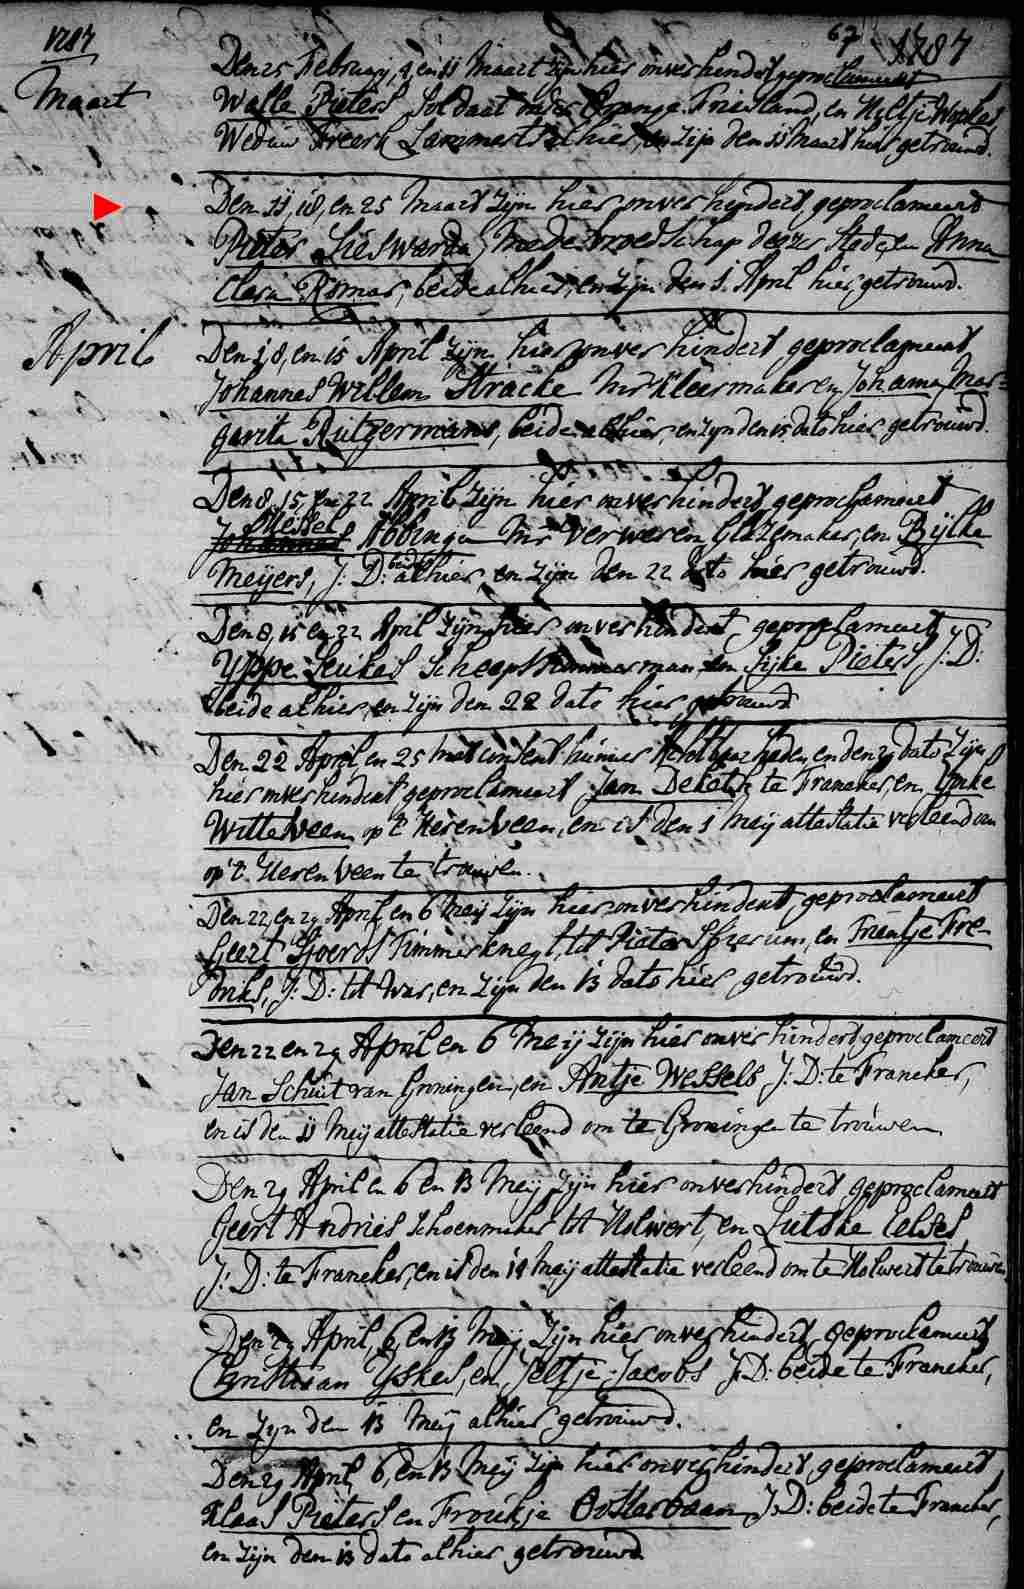 1787
67 1787
Maart
Den 25 February, 4, en 11 Maart zijn hier onverhindert geproclameert
Walle Pieters Soldaat onder Orange Friesland, en Hiltje Wopkes
Wedue Freerk Lammerts alhier, en zijn den 11 Maart hier getrouwd.
Den 11, 18, en 25 Maart zijn hier onverhindert geproclameert
Pieter Lieswarda, mede vroedschap dezer Stede, en Anna
Clara Romar, beide alhier, en zijn den 1 April hier getrouwd.
April
Den 1, 8, en 15 April zijn hier onverhindert geproclameert
Johannes Willem Stracke Mr Kleermaker en Johanna Mar-
garita Rutgermans, beide alhier, en zijn den 15 dato hier getrouwd.
Den 8, 15, en 22 April zijn hier onverhindert geproclameert
Wessel
Johannes Abbinga Mr Verwer en Glazemaker, en Bijlke
Meijers, J: D: beide alhier, en zijn den 22 dato hier getrouwd.
Den 8, 15 en 22 April zijn hier onverhindert geproclameert
Yppe Leukes Scheepstimmerman, en Sijke Pieters J: D:
beide alhier, en zijn den 28 dato hier getrouwd
Den 22 April en 25 met consent hunner Achtbaarheden, en den 29 dato zijn
hier onverhindert geproclameert Jan Deketh te Franeker, en Ymke
Witteveen op 't Herenveen, en is den 1 Meij attestatie verleend om
op 't Herenveen te trouwen.
Den 22, en 29 April, en 6 Meij zijn hier onverhindert geproclameert
Geert Sjoerds Timmerknegt, tot Pieters Bierum, en Trientje Fre-
driks, J: D: tot War, en zijn den 13 dato hier getrouwd.
Den 22 en 29 April en 6 Meij zijn hier onverhindert geproclameert
Jan Schuit van Groningen, en Antje Wessels J: D: te Franeker,
en is den 11 Meij attestatie verleend om te Groningen te trouwen.
Den 29 April en 6 en 13 Meij zijn hier onverhindert geproclameert
Geert Andries Schoenmaker tot Holwert, en Lutske Eelses
J: D: te Franeker, en is den 18 Meij attestatie verleend om te Holwert te trouwen
Den 29 April, 6, en 13 Meij zijn hier onverhindert geproclameert
Christiaan Yskes, en Jeltje Jacobs J: D: beide te Franeker,
en zijn den 13 Meij alhier getrouwd.
Den 29 April, 6, en 13 Meij zijn hier onverhindert geproclameert
Klaas Pieters en Froukje Oosterbaan J: D: beide te Franeker,
en zijn den 13 dato alhier getrouwd